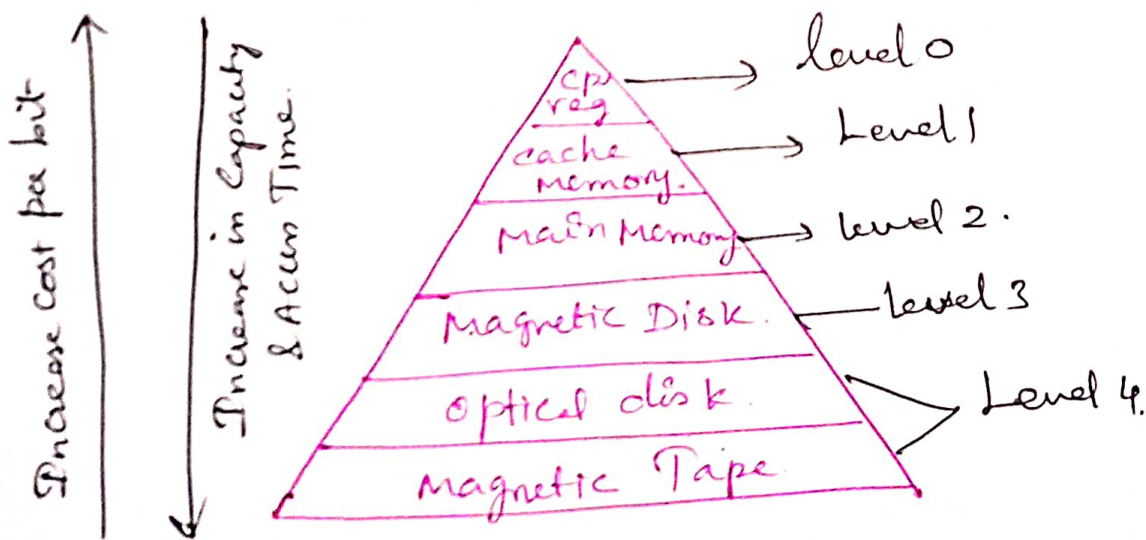 Increase Cost per bit
Increase in Capacity
& Access Time.
CPU
reg
Cache
Memory.
Main Memory
Magnetic Disk.
Optical disk.
Magnetic Tape
level 0
Level 1
level 2.
Level 3
Level 4.